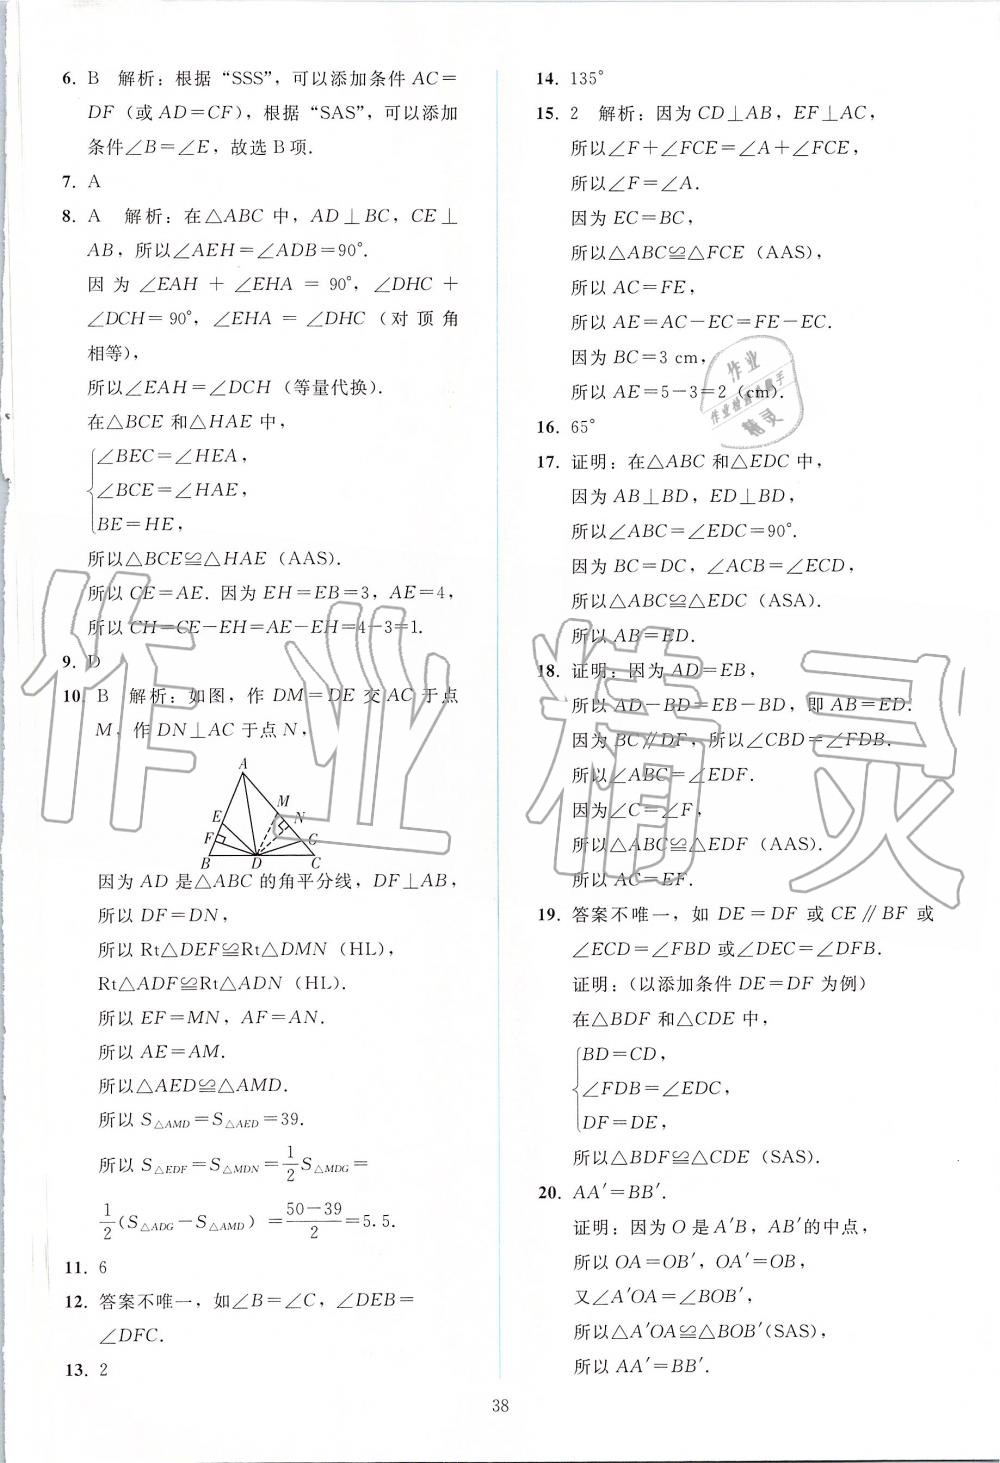 6. B 解析：根据“SSS”，可以添加条件 AC=
DF（或 AD=CF），根据“SAS”，可以添加
条件∠B=∠E，故选 B 项.
7. A
8. A 解析：在△ABC 中，AD⊥BC，CE⊥
AB，所以∠AEH=∠ADB=90°.
因为∠EAH+∠EHA=90°，∠DHC+
∠DCH=90°，∠EHA=∠DHC（对顶角
相等），
所以∠EAH=∠DCH（等量代换）.
在△BCE 和△HAE 中，
∠BEC=∠HEA，
∠BCE=∠HAE，
BE=HE，
所以△BCE≌△HAE（AAS）.
所以 CE=AE. 因为 EH=EB=3，AE=4，
所以 CH=CE-EH=AE-EH=4-3=1.
9. D
10. B 解析：如图，作 DM=DE 交 AC 于点
M，作 DN⊥AC 于点 N，
A
M
E
N
F
G
B
D
C
因为 AD 是△ABC 的角平分线，DF⊥AB，
所以 DF=DN，
所以 Rt△DEF≌Rt△DMN（HL），
Rt△ADF≌Rt△ADN（HL）.
所以 EF=MN，AF=AN.
所以 AE=AM.
所以△AED≌△AMD.
所以 S△AMD=S△AED=39.
所以 S△EDF=S△MDN=1/2 S△MDG=
1/2(S△ADG-S△AMD)=(50-39)/2=5.5.
11. 6
12. 答案不唯一，如∠B=∠C，∠DEB=
∠DFC.
13. 2
14. 135°
15. 2 解析：因为 CD⊥AB，EF⊥AC，
所以∠F+∠FCE=∠A+∠FCE，
所以∠F=∠A.
因为 EC=BC，
所以△ABC≌△FCE（AAS），
所以 AC=FE，
所以 AE=AC-EC=FE-EC.
因为 BC=3 cm，
所以 AE=5-3=2（cm）.
16. 65°
17. 证明：在△ABC 和△EDC 中，
因为 AB⊥BD，ED⊥BD，
所以∠ABC=∠EDC=90°.
因为 BC=DC，∠ACB=∠ECD，
所以△ABC≌△EDC（ASA）.
所以 AB=ED.
18. 证明：因为 AD=EB，
所以 AD-BD=EB-BD，即 AB=ED.
因为 BC∥DF，所以∠CBD=∠FDB.
所以∠ABC=∠EDF.
因为∠C=∠F，
所以△ABC≌△EDF（AAS）.
所以 AC=EF.
19. 答案不唯一，如 DE=DF 或 CE∥BF 或
∠ECD=∠FBD 或∠DEC=∠DFB.
证明：（以添加条件 DE=DF 为例）
在△BDF 和△CDE 中，
BD=CD，
∠FDB=∠EDC，
DF=DE，
所以△BDF≌△CDE（SAS）.
20. AA′=BB′.
证明：因为 O 是 A′B，AB′的中点，
所以 OA=OB′，OA′=OB，
又∠A′OA=∠BOB′，
所以△A′OA≌△BOB′(SAS)，
所以 AA′=BB′.
38
作业精灵
作业
精灵